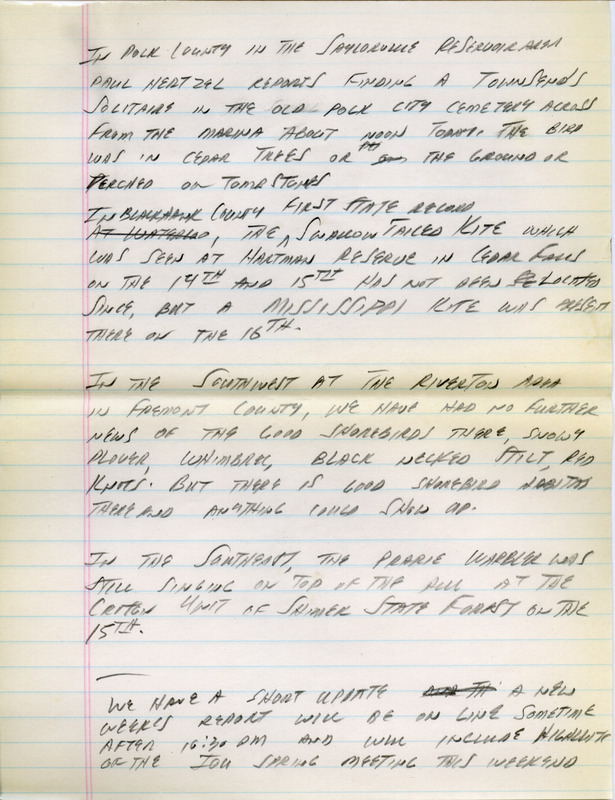 IN POLK COUNTY IN THE SAYLORVILLE RESERVOIR AREA
PAUL HERTZEL REPORTS FINDING A TOWNSENDS
SOLITAIRE IN THE OLD POLK CITY CEMETERY ACROSS
FROM THE MARINA ABOUT NOON TODAY. THE BIRD
WAS IN CEDAR TREES OR ON THE GROUND OR
PERCHED ON TOMBSTONES
IN BLACKHAWK COUNTY FIRST STATE RECORD
AT WATERLOO, THE SWALLOW TAILED KITE WHICH
WAS SEEN AT HARTMAN RESERVE IN CEDAR FALLS
ON THE 14TH AND 15TH HAS NOT BEEN RELOCATED
SINCE, BUT A MISSISSIPPI KITE WAS PRESENT
THERE ON THE 16TH.
IN THE SOUTHWEST AT THE RIVERTON AREA
IN FREMONT COUNTY, WE HAVE HAD NO FURTHER
NEWS OF THE GOOD SHOREBIRDS THERE, SNOWY
PLOVER, WHIMBREL, BLACK NECKED STILT, RED
KNOTS. BUT THERE IS GOOD SHOREBIRD HABITAT
THERE AND ANYTHING COULD SHOW UP.
IN THE SOUTHEAST, THE PRARIE WARBLER WAS
STILL SINGING ON TOP OF THE HILL AT THE
CROTON UNIT OF SHIMEK STATE FOREST ON THE
15TH.
WE HAVE A SHORT UPDATE A NEW
WEEKLY REPORT WILL BE ON LINE SOMETIME
AFTER 10:30 PM AND WILL INCLUDE HIGHLIGHTS
OF THE IOU SPRING MEETING THIS WEEKEND